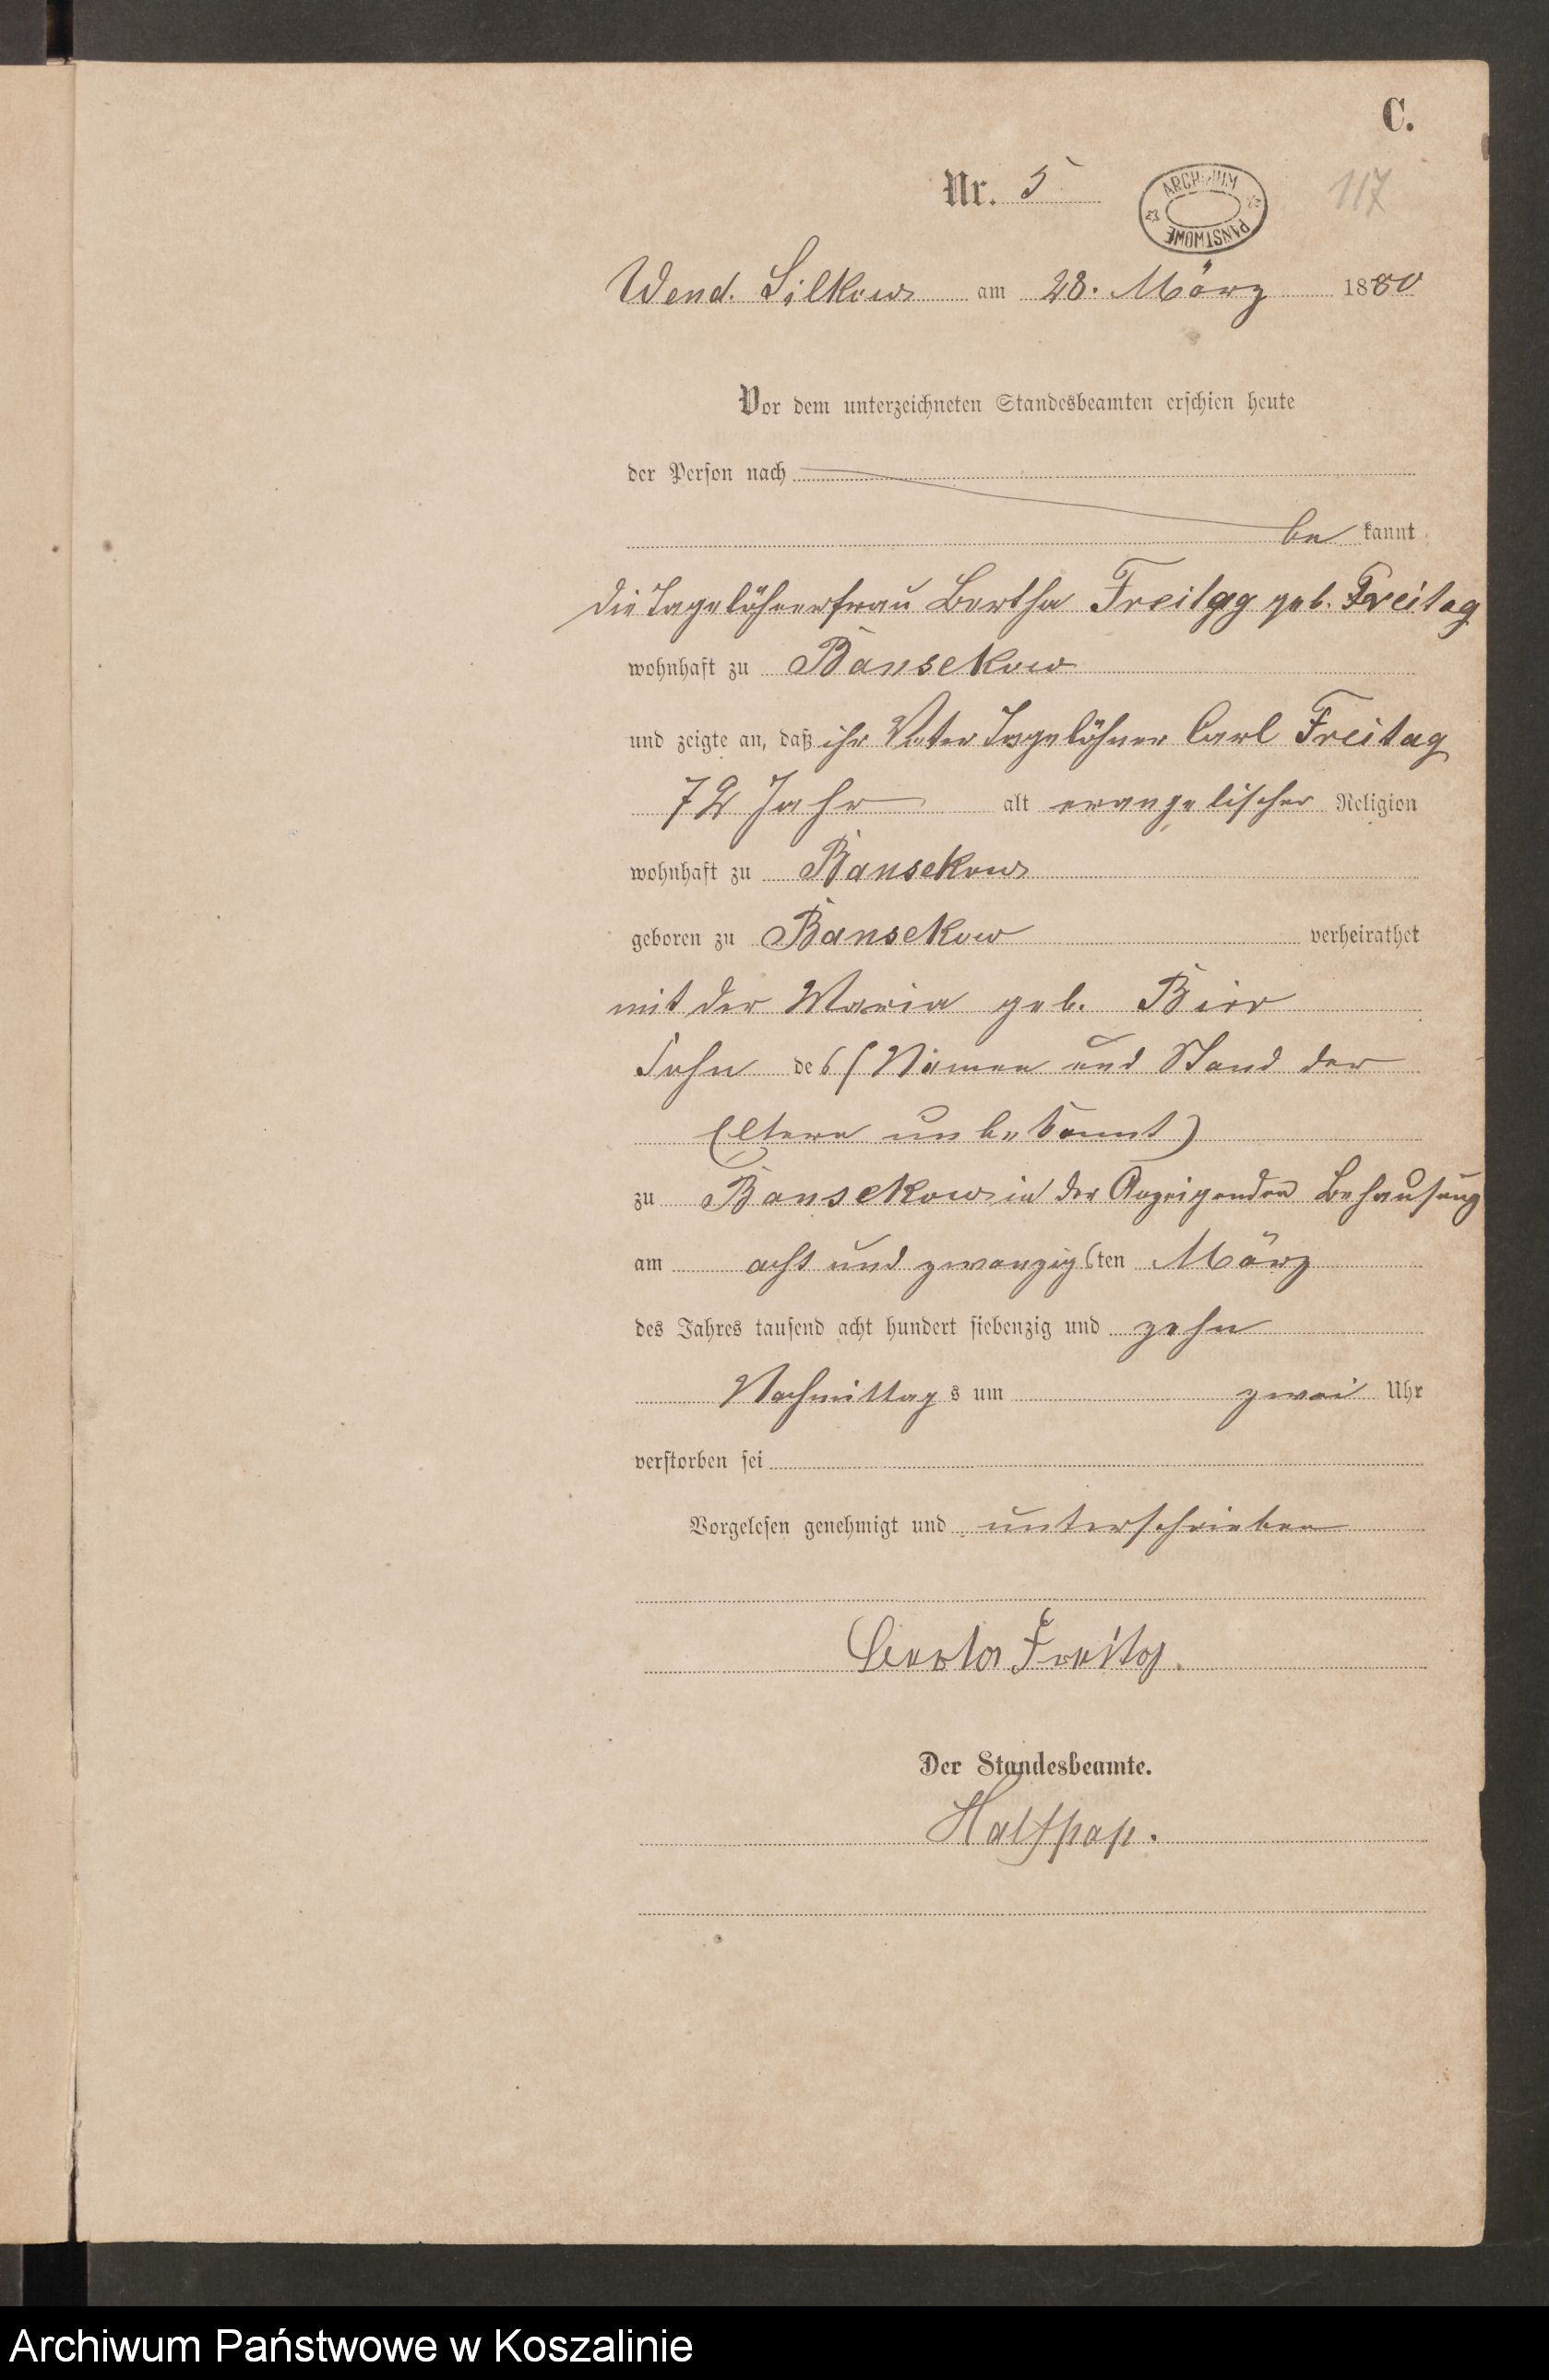 C.
Nr. 5
ARCHIWUM PAŃSTWOWE
117
Wend. Silkow am 28. März 1880
Vor dem unterzeichneten Standesbeamten erschien heute
der Person nach
be kannt
die Tagelöhnerfrau Bertha Freitag geb. Freitag
wohnhaft zu Bansekow
und zeigte an, daß ihr Vater Tagelöhner Carl Freitag
72 Jahr alt evangelischer Religion
wohnhaft zu Bansekow
geboren zu Bansekow verheirathet
mit der Maria geb. Bier
Sohn des (Namen und Stand der
Eltern unbekannt)
zu Bansekow in der Anzeigenden Behausung
am acht und zwanzigsten März
des Jahres tausend acht hundert siebenzig und zehn
Nachmittags um zwei Uhr
verstorben sei
Vorgelesen genehmigt und unterschrieben
Berta Freitag.
Der Standesbeamte.
Halfpap.
Archiwum Państwowe w Koszalinie